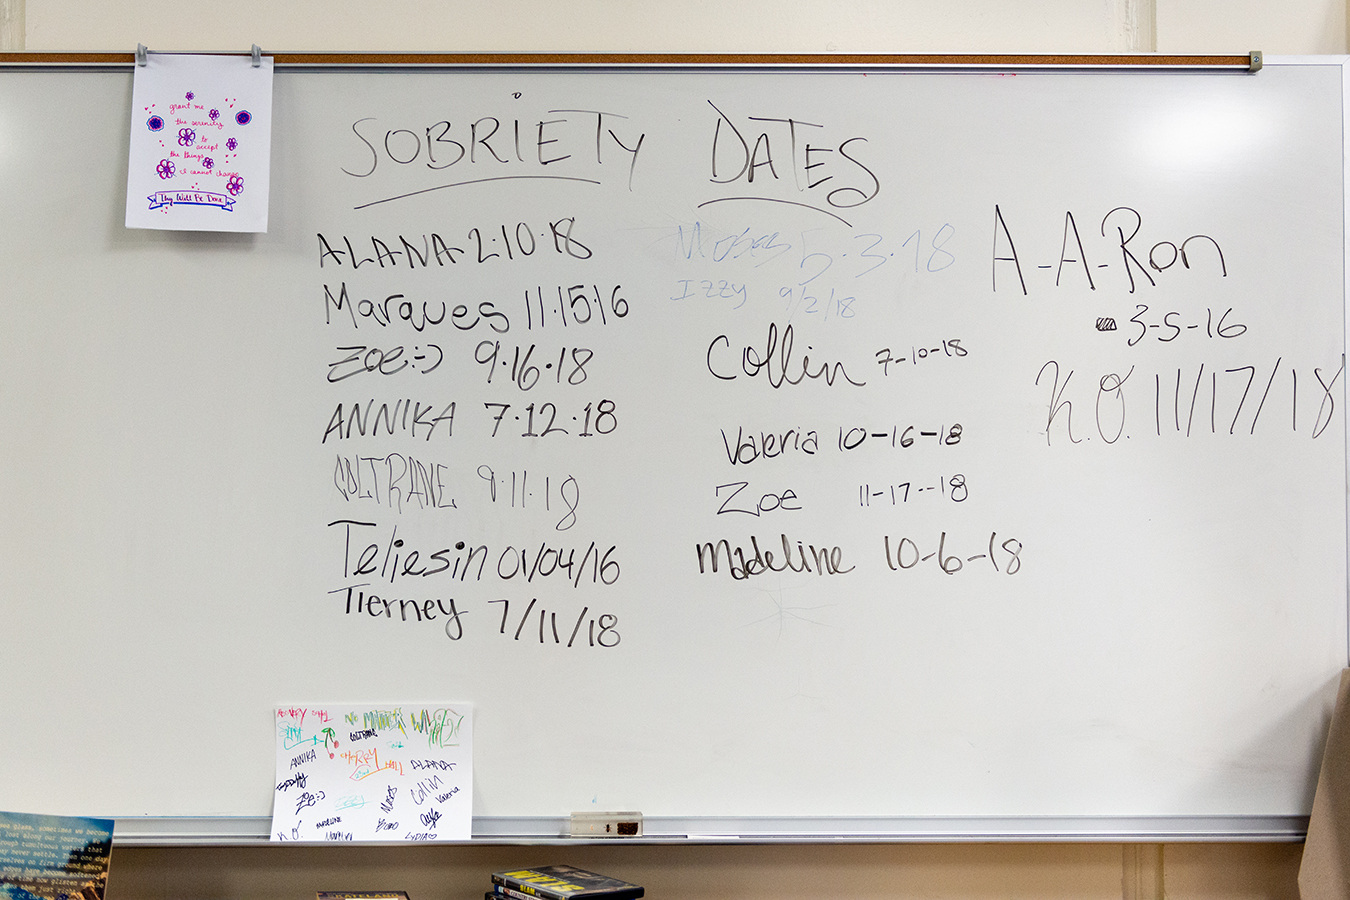 SOBRIETY DATES
grant me
the serenity
to
accept
the things
I cannot change
Thy Will Be Done
ALANA 2·10·18
Marques 11·15·16
Zoe:-) 9·16·18
ANNIKA 7·12·18
COLTRANE 9·11·18
Teliesin 01/04/16
Tierney 7/11/18
Moses 5·3·18
Izzy 9/2/18
Collin 7-10-18
Valeria 10-16-18
Zoe 11-17-18
madeline 10-6-18
A-A-Ron
3-5-16
K.O. 11/17/18
NO MATTER WHAT
COLTRANE
ANNIKA
ALANA
Zoe:-)
Moses
Collin
Valeria
K.O.
MADELINE
LYDIA
SLAM